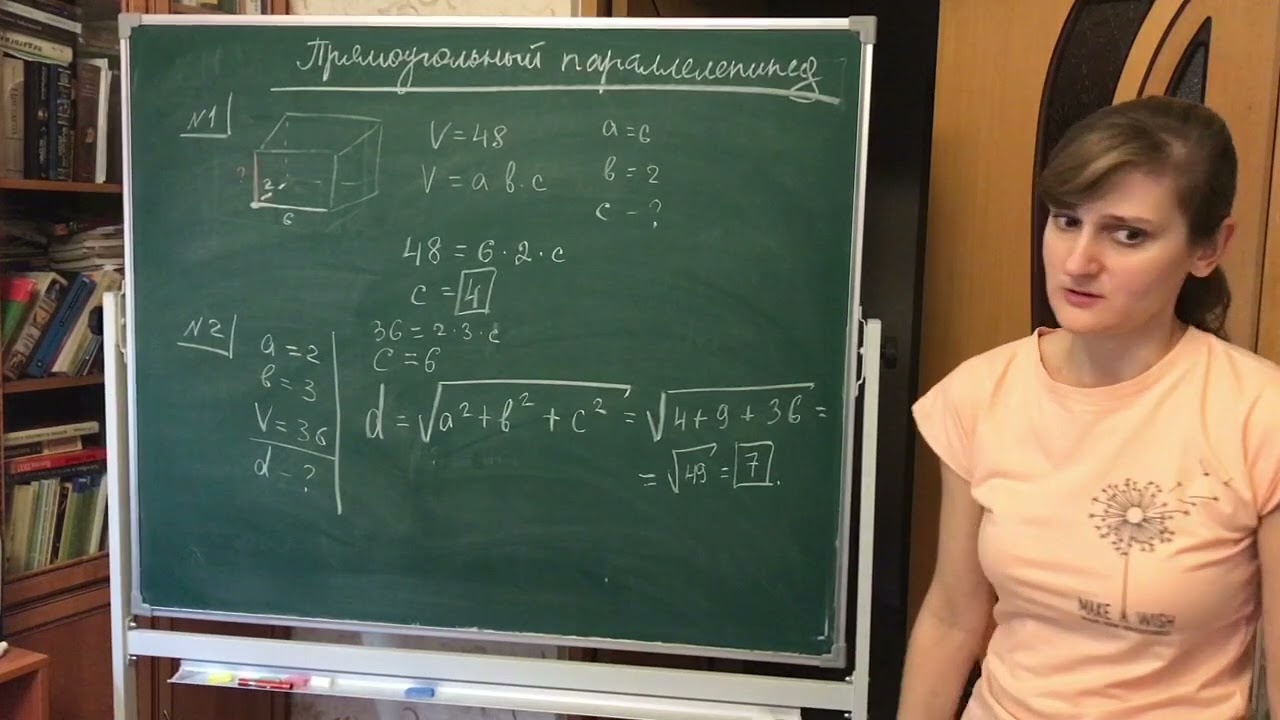 Прямоугольный параллелепипед
№1
V = 48
a = 6
V = a b · c
b = 2
c - ?
?
2
6
48 = 6 · 2 · c
c = 4
№2
a = 2
b = 3
V = 36
d - ?
36 = 2 · 3 · c
c = 6
d = √a² + b² + c² = √4 + 9 + 36 =
= √49 = 7.
MAKE A WISH